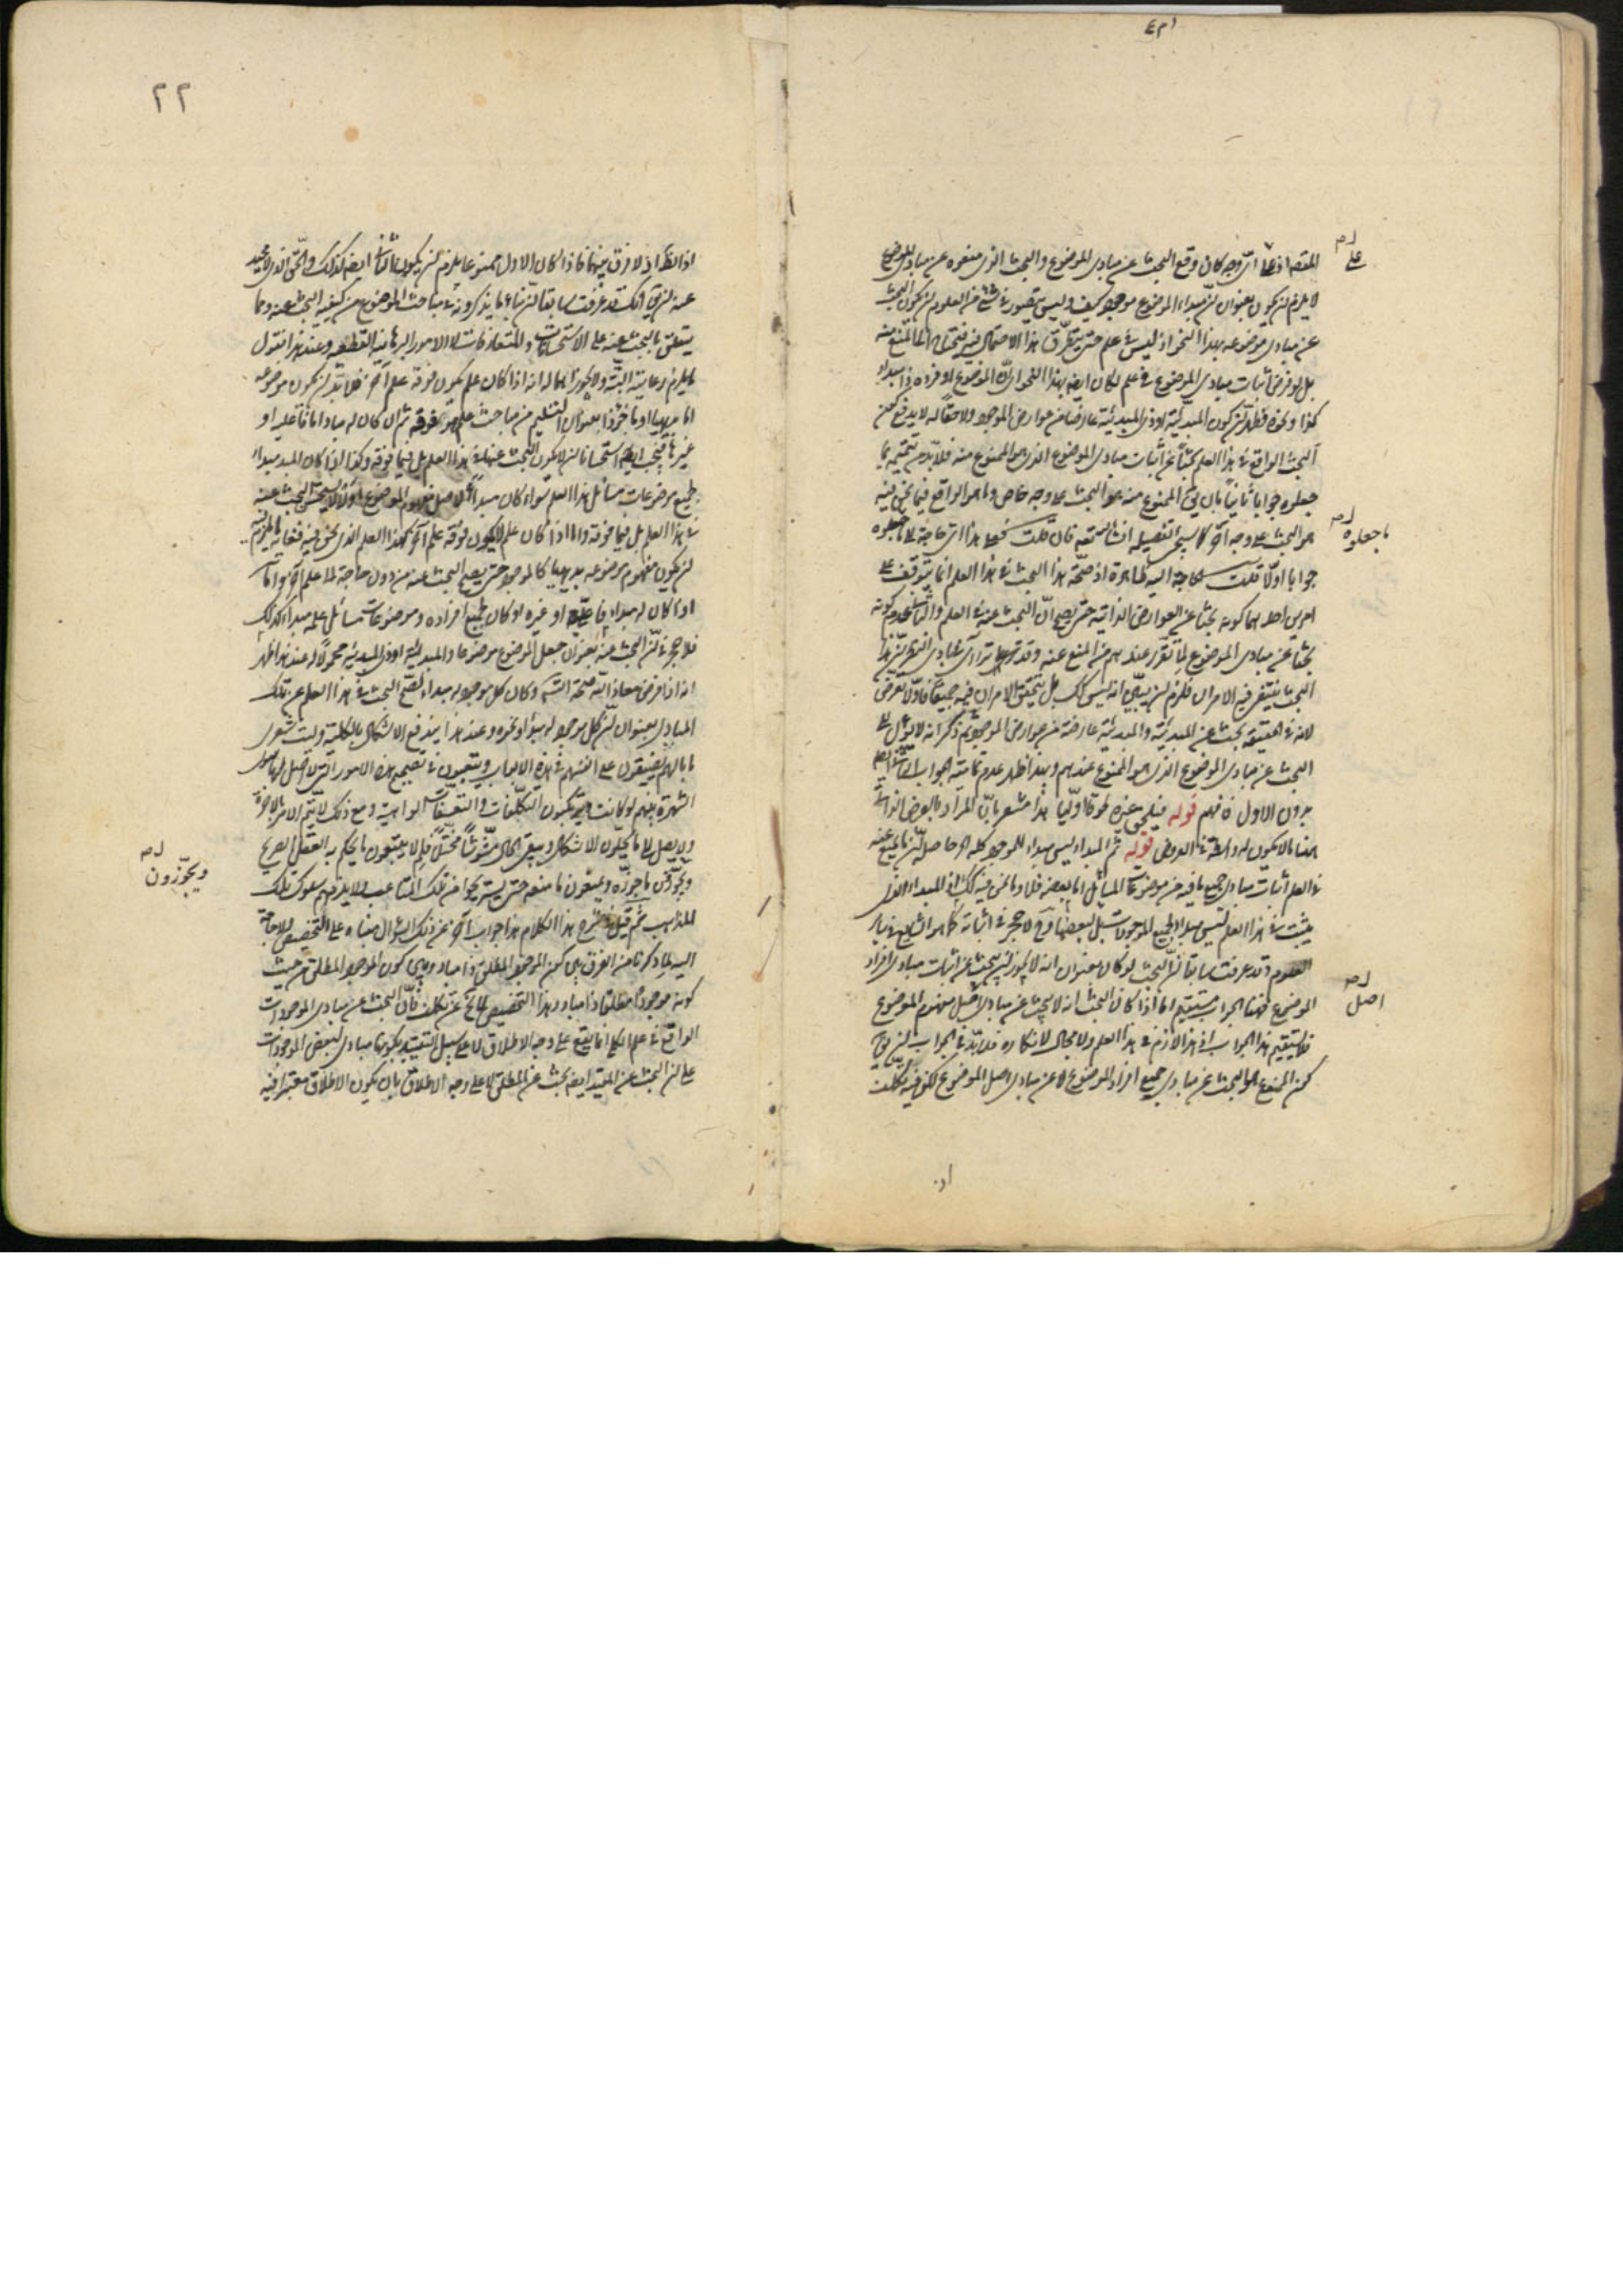 المقصد اذ على اى وجه كان وقع البحث عن مبادى الموضوع والبحث الذى منعوه عن مبادى الموضوع
على
لا يلزم ان يكون بعنوان ان مبداء الموضوع موجود كيف وليس يتصور فى شئ من العلوم ان يكون البحث
عن مبادى موضوعه بهذا النحو اذ ليس علم حتى يتطرق هذا الاحتمال فيه
بل لو فرض اثبات مبادى الموضوع فى علم لكان ايضا بهذا النحو اى ان الموضوع او فرده ذا مبداء
كذا ونحوه فظهر ان كون المبدئية او ذى المبدئية عارضا من عوارض الموجود ولاحقا له لا يدفع كون
البحث الواقع فى هذا العلم بحثا عن اثبات مبادى الموضوع الذى هو الممنوع منه فلا بد من تتميم بما
جعلوه جوابا ثانيا بان يق الممنوع منه هو البحث على وجه خاص وما هو الواقع فيما نحن فيه
هو البحث على وجه آخر كما سيجئ تفصيله انشاء الله تعالى فان قلت فعلى هذا اى حاجة الى ما جعلوه
ما جعلوه
جوابا اولا قلت الحاجة اليه ظاهرة اذ صحة هذا البحث فى هذا العلم انما يتوقف على
امرين احدهما كونه بحثا عن العوارض الذاتية حتى يصح ان البحث عنه فى العلم والثانى عدم كونه
بحثا عن مبادى الموضوع لما تقرر عندهم من المنع عنه وقد
البحث ينتفى فيه الامران فلزم ان يبين انه ليس كك بل يتحقق الامران فيه جميعا فاولا تعرض
لانه فى الحقيقة بحث عن المبدئية والمبدئية عارضة من عوارض الموجود ثم ذكر انه لا يؤل الى
البحث عن مبادى الموضوع الذى هو الممنوع عندهم وبهذا ظهر عدم تمامية الجواب
بدون الاول فافهم قوله فيلحق غيره لحوقا اوليا هذا مشعر بان المراد بالعرض الذاتى
ههنا ما لا يكون له واسطة فى العروض قوله ثم المبداء ليس مبداء للموجود كله الحاصل ان ما يمنع عنه
فى العلم اثبات مبادى جميع ما فيه من موضوعات المسائل اما بعضه فلا وما نحن فيه كك اذ المبداء الذى
يثبت فى هذا العلم ليس مبداء لجميع الموجودات بل لبعضها فح لا حجر فى اثباته كما هو الشايع فى ساير
العلوم وقد عرفت سابقا ان البحث لو كان بعنوان انه لا يجوز ان يبحث عن اثبات مبادى افراد
الموضوع فهذا الجواب مستقيم اما اذا كان البحث انه لا يبحث عن مبادى اصل مفهوم الموضوع
اصل
فلا يستقيم هذا الجواب اذ هذا لازم فى هذا العلم ولا مجال لانكاره فلا بد فى الجواب ان يق
كون الممنوع هو البحث عن مبادى جميع افراد الموضوع لا عن مبادى اصل الموضوع لكن فيه تكلف
اذ
٢٢
اذ الظ اذ لا فرق بينهما فاذا كان الاول ممنوعا يلزم ان يكون الثانى ايضا كذلك والحق الذى لا محيد
عنه ان يق انك قد عرفت سابقا ان بناء ما يذكرونه فى مباحث الموضوع من كيفية البحث عنه وما
يتعلق بالبحث عنه على الاستحسانات والمتعارفات لا الامور البرهانية القطعية وعند هذا نقول
ما يلزم رعايته البتة ولا يجوز اهماله انه اذا كان علم يكون فوقه علم آخر فلا بد ان يكون موضوعه
اما بديهيا او ماخوذا بعنوان التسليم من مباحث علم هو فوقه ثم ان كان له مباد اما فاعلية او
غيرها فيجب ايضا استحسانا ان لا يكون البحث عنها فى هذا العلم بل فيما فوقه وكذا اذا كان المبدء مبداء
لجميع موضوعات مسائل هذا العلم سواء كان مبداء لاصل مفهوم الموضوع اولا لا يستحق البحث عنه
فى هذا العلم بل فيما فوقه واما اذا كان علم لا يكون فوقه علم آخر كهذا العلم الذى نحن فيه فغاية ما يلزم فيه
ان يكون مفهوم موضوعه بديهيا كالموجود حتى يصح البحث عنه من دون حاجة الى علم آخر واما
اذا كان له مبداء فاعلى او غيره او كان لجميع افراده وموضوعات مسائل علمه مبداء كذلك
فلا حجر فى ان البحث عنه بعنوان جعل الموضوع موضوعا والمبدئية او ذى المبدئية محمولا له عند هذا ظهر
انه اذا فرض معاذ الله صحة التس وكان كل موجود له مبداء لصح البحث فى هذا العلم عن تلك
المبادى بعنوان ان كل موجود له مبداء او نحوه وعند هذا يندفع الاشكال بالكلية وليت شعرى
ما بالهم يضيقون على انفسهم فى هذه الابواب ويتعبون فى تصحيح هذه الامور التى لا اصل لها سوى
الشهرة بينهم لو كانت ويرتكبون التكلفات والتعسفات الواهية ومع ذلك لا يتم الامر بالاخرة
ولا يصل الى ما يحلون الاشكال ويبقى الحال مشوشا مختلا فلم لا يتبعون ما يحكم به العقل الصريح
ويجوزون ما جوزه ويمنعون ما منعه حتى يستريحوا من تلك المتاعب ولا يلزمهم سلوك تلك
ويجوزون
المذاهب ثم قيل فى شرح هذا الكلام هذا جواب آخر عن ذلك السؤال مبناه على التخصيص ولا حاجة
اليه لما ذكرنا من الفرق بين كون الموجود المطلق ذا مباد وبين كون الموجود المطلق من حيث
كونه موجودا مطلقا ذا مباد وهذا التخصيص لا يخ عن تكلف فان البحث عن مبادى الموجودات
الواقع فى علم الكلى انما يقع على وجه الاطلاق لا على سبيل التقييد بكونها مبادى لبعض الموجودات
على ان البحث عن المقيد ايضا بحث عن المطلق لا على وجه الاطلاق بان يكون الاطلاق معتبرا فيه